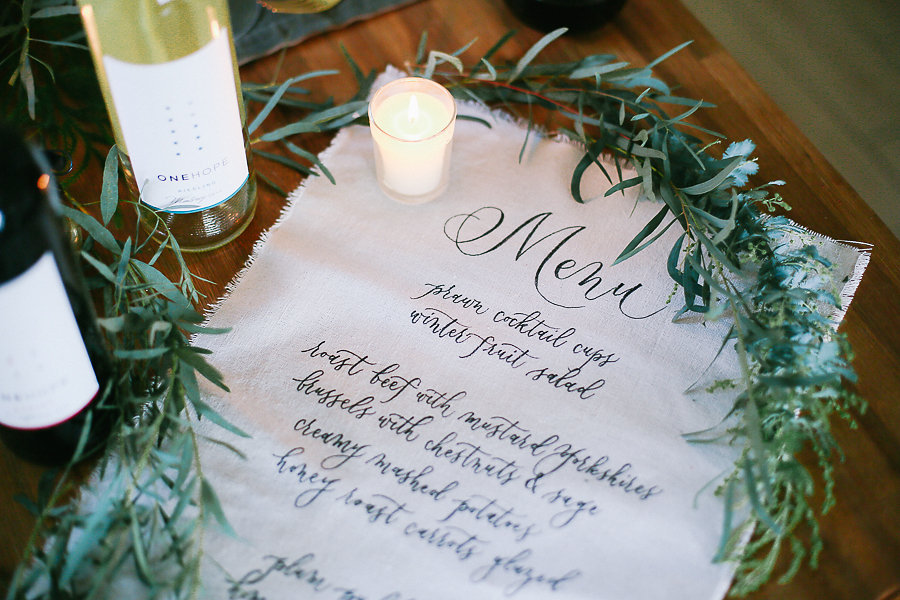 ONEHOPE
RIESLING
Menu
prawn cocktail cups
winter fruit salad
roast beef with mustard yorkshires
brussels with chestnuts & sage
creamy mashed potatoes
honey roast carrots glazed
plum